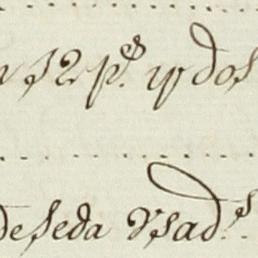 n 32 p.s y dos
de seda Vsad.s